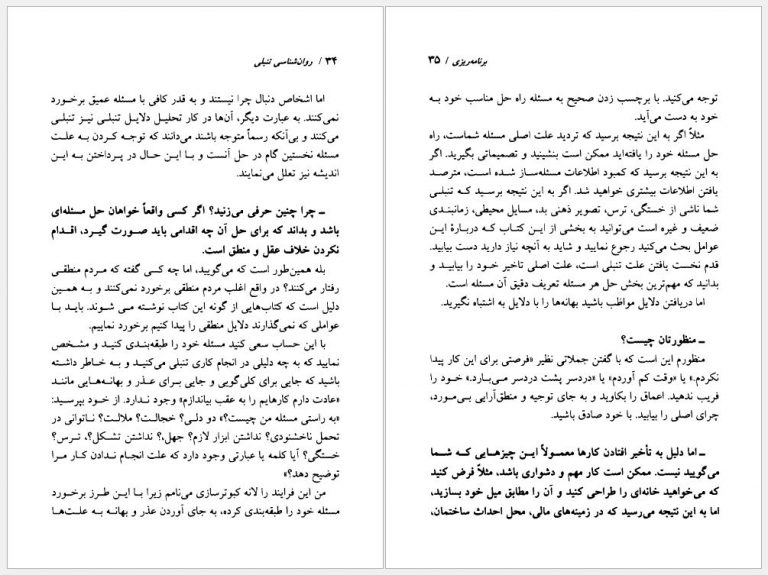 ۳۴ / روان‌شناسی تنبلی
اما اشخاص دنبال چرا نیستند و به قدر کافی با مسئله عمیق برخورد
نمی‌کنند. به عبارت دیگر، آن‌ها در کار تحلیـل دلایـل تنبلـی نیـز تنبلی
می‌کنند و بی‌آنکه رسماً متوجه باشند می‌دانند که توجـه کـردن بـه علـت
مسئله نخستین گام در حل آنست و بـا ایـن حـال در پـرداختن بـه ایـن
اندیشه نیز تعلل می‌نمایند.
ـ چـرا چنین حرفی می‌زنید؟ اگر کسی واقعـاً خواهان حل مسئله‌ای
باشد و بداند که برای حل آن چه اقدامی باید صـورت گیـرد، اقـدام
نکردن خلاف عقل و منطق است.
بله همین‌طور است که می‌گویید، اما چه کـی گفته که مـردم منطقـی
رفتار می‌کنند؟ در واقع اغلب مردم منطقی برخورد نمی‌کنند و بـه همـین
دلیل است که کتاب‌هایی از گونه این کتاب نوشته مـی شـوند. بایـد بـا
عواملی که نمی‌گذارند دلایل منطقی را پیدا کنیم برخورد نماییم.
با این حساب سعی کنید مسئله خود را طبقه‌بندی کنیـد و مـشخص
نمایید که به چه دلیلی در انجام کاری تنبلی می‌کنیـد و بـه خـاطر داشته
باشید که جایی برای کلی‌گویی و جایی بـرای عـذر و بهانـه‌هـایی ماننـد
«عادت دارم کارهایم را به عقب بیاندازم» وجود نـدارد. از خـود بپرسـید:
«به راستی مسئله من چیست؟» دو دلـی؟ خجالـت؟ ملالـت؟ ناتوانی در
تحمل ناخشنودی؟ نداشتن ابزار لازم؟ جهل،؟ نداشتن تـشکـل؟، تـرس؟
خستگی؟ آیا کلمه یا عبارتی وجود دارد که علت انجام نـدادن کـار مـرا
توضیح دهد؟»
من این فرایند را لانه کبوترسازی می‌نامم زیرا بـا ایـن طـرز برخورد
مسئله خود را طبقه‌بندی کرده، به جای آوردن عذر و بهانـه بـه علت‌هـا
برنامه‌ریزی / ۳۵
توجه می‌کنید. با برچسب زدن صحیح به مسئله راه حل مناسب خود بـه
خود به دست می‌آید.
مثلاً اگر به این نتیجه برسید که تردید علت اصلی مسئله شماست، راه
حل مسئله خود را یافته‌اید ممکن است بنشینید و تصمیماتی بگیرید. اگر
به این نتیجه برسید که کمبود اطلاعات مسئله‌سـاز شـده اسـت، مترصـد
یافتن اطلاعات بیشتری خواهید شد. اگر به این نتیجه برسـید کـه تنبلـی
شما ناشی از خستگی، ترس، تصویر ذهنی بد، مسایل محیطی، زمانبندی
ضعیف و غیره است می‌توانید به بخشی از این کتـاب کـه دربـارۀ ایـن
عوامل بحث می‌کنید رجوع نمایید و شاید به آنچه نیاز دارید دست بیابید.
قدم نخست یافتن علت تنبلی است، علت اصلی تاخیر خـود را بیابیـد و
بدانید که مهم‌ترین بخش حل هر مسئله تعریف دقیق آن مسئله است.
اما دریافتن دلایل مواظب باشید بهانه‌ها را با دلایل به اشتباه نگیرید.
ـ منظورتان چیست؟
منظورم این است که با گفتن جملاتی نظیر «فرصتی برای این کار پیدا
نکردم.» یا «وقت کم آوردم» یا «دردسر پشت دردسر مـی‌بـارد.» خـود را
فریب ندهید. اعماق را بکاوید و به جای توجیه و منطق‌آرایی بی‌مـورد،
چرای اصلی را بیابید. با خود صادق باشید.
ـ اما دلیل به تأخیر افتادن کارها معمـولاً ایـن چیزهـایی کـه شـما
می‌گویید نیست. ممکن است کار مهم و دشواری باشد، مثلاً فرض کنید
که می‌خواهید خانه‌ای را طراحی کنید و آن را مطابق میل خود بسازید،
اما به این نتیجه می‌رسید که در زمینه‌های مالی، محل احداث ساختمان،